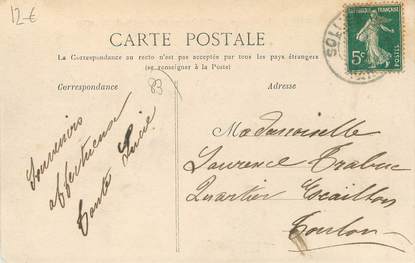 12-€
CARTE POSTALE
La Correspondance au recto n'est pas acceptée par tous les pays étrangers
(se renseigner à la Poste)
Correspondance
83
Adresse
REPUBLIQUE FRANÇAISE
5c
POSTES
SOLLI
Souvenirs
affectueux
Tante Lucie
Mademoiselle
Laurence Trabuc
Quartier Escaillon
Toulon